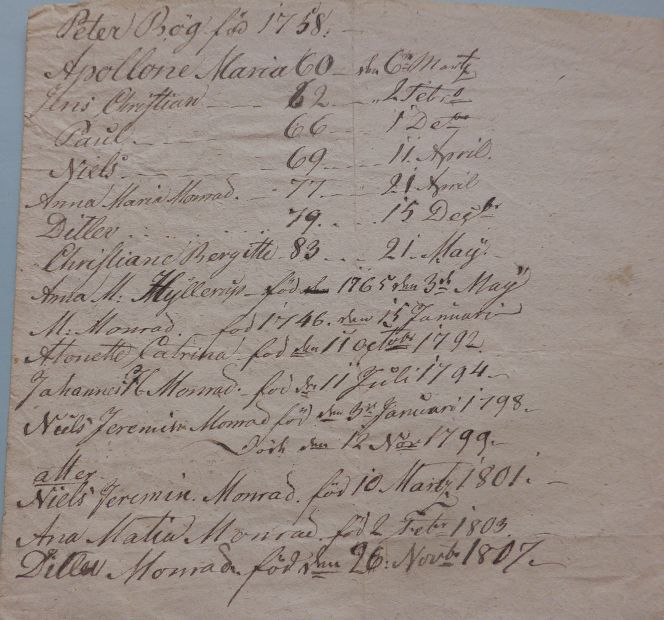 Peter Bög föd 1758. –
Apollone Maria 60 – den 6te Martz
Jens Christian – – 62 – – 2 Febro
Paul. – – – 66 – – 1 De
Niels – – – 69 – – 11 April.
Anna Maria Monrad. – 77 – – 21 April
Ditlev . . . . . . . . 79. . . 15 Decbr
Christiane Bergitte 83 . . . 21. May.
Anna M: Hyllerup – föd 1765 den 3de May
M: Monrad. – föd 1746. den 15 Januari
Atonette Catrina – föd den 11 octobr 1792
Johannes H Monrad. – föd den 11 Juli 1794 –
Niels Jeremin Monrad föd den 3de Januari 1798 –
Död den 12 Nov 1799 –
atter
Niels Jeremin. Monrad. föd 10 Martz 1801. –
Ana Matia Monrad föd 2 Febr 1803
Ditlev Monrad. föd den 26. Novbr 1807. –